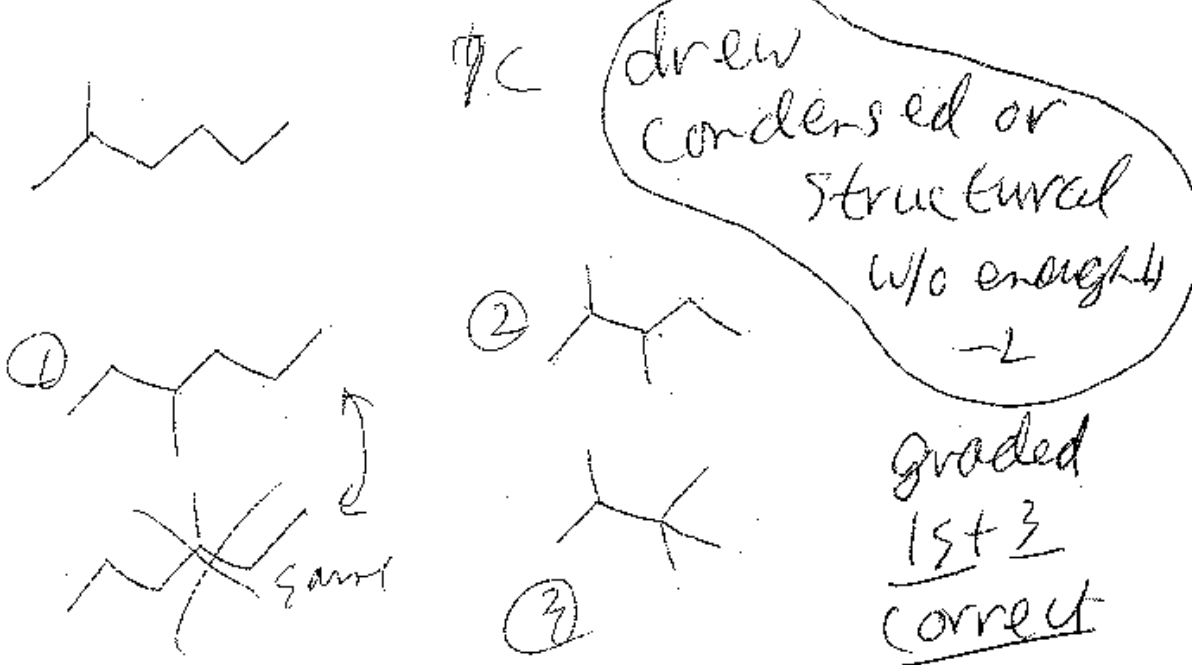 7C
drew
condensed or
structural
w/o enough H
-2
①
②
same
③
graded
1st 3
correct